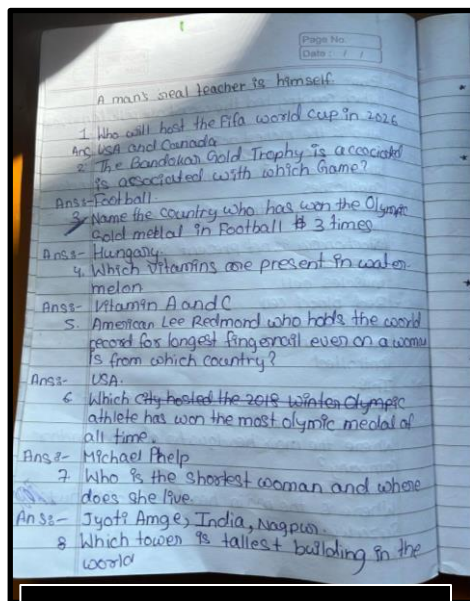 Page No.
Date: / /
A man's real teacher is himself.
1. Who will host the Fifa world cup in 2026
Ans. USA and Canada
2. The Bandokan Gold Trophy is accociated
is associated with which Game?
Anss- Football.
3. Name the country who has won the Olympic
Gold metlal in Football 3 times
Anss- Hungary.
4. Which vitamins are present in water
melon
Anss- Vitamin A and C
5. American Lee Redmond who holds the world
record for longest fingernail even on a woman
is from which country?
Anss- USA.
6 Which city hosted the 2018 winter Olympic
athlete has won the most olymic medal of
all time.
Anss- Michael Phelp
7 Who is the shortest woman and where
does she live.
Anss- Jyoti Amge, India, Nagpur.
8 Which tower is tallest building in the
world